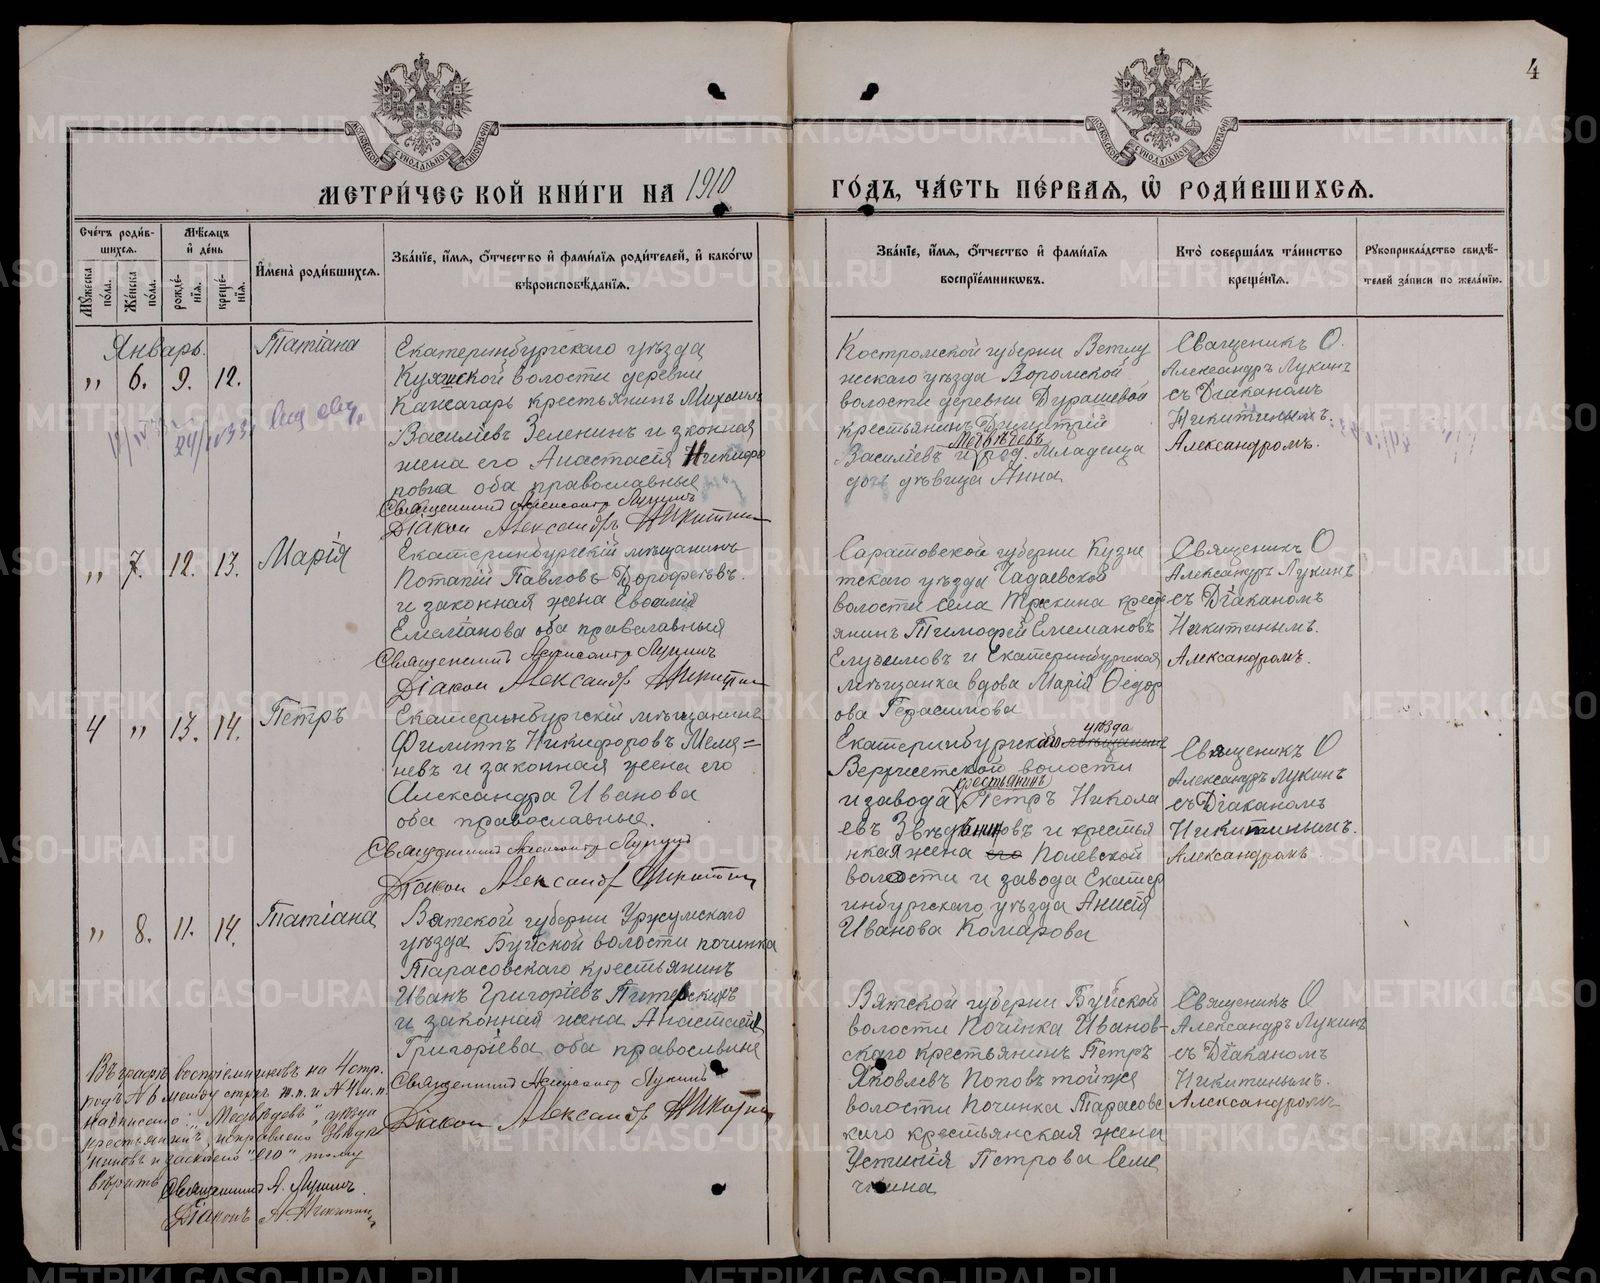 4
МОСКОВСКОЙ СѴНОДАЛЬНОЙ ТИПОГРАФІИ
МОСКОВСКОЙ СѴНОДАЛЬНОЙ ТИПОГРАФІИ
МЕТРИ́ЧЕСКОЙ КНИ́ГИ НА 1910
ГО́ДЪ, ЧА́СТЬ ПЕ́РВАЯ, Ѡ҆ РОДИ́ВШИХСЯ.
Сче́тъ роди́в-
шихся.
Мꙋ́жеска по́ла.
Же́нска по́ла.
Мѣ́сяцъ
и҆ де́нь
рожде́-
нїя.
креще́-
нїя.
И҆мена̀ роди́вшихся.
Зва́нїе, и҆́мя, ѻ҆́тчество и҆ фами́лїя роди́телей, и҆ како́гѡ
вѣроисповѣ́данїя.
Зва́нїе, и҆́мя, ѻ҆́тчество и҆ фами́лїя
воспрїе́мникѡвъ.
Кто̀ соверша́лъ та́инство
креще́нїя.
Рꙋкоприкла́дство свидѣ́-
телей за́писи по жела́нїю.
Январь.
" 6. 9. 12.
Татіана
Екатеринбургскаго уѣзда
Куяшской волости деревни
крестьянинъ Михаилъ
Васильевъ Зеленинъ и зконная
жена его Анастасія Никифо
ровна оба православные
Священникъ Александръ Лукинъ
Діакон Александръ Никитин
Костромской губерни Ветлу
жскаго уѣзда
волости деревни
крестьянинъ Димитрій
Медвѣдевъ
Васильевъ и род. младенца
дочь дѣвица Анна
Сващеникъ О.
Александръ Лукинъ
съ Діаканомъ
Никитинымъ.
Александромъ.
" 7. 12. 13.
Марія
Екатеринбургскій мѣщанинъ
Потапій Павловъ Дорофеевъ.
и законная жена
Емеліанова оба православныя
Священникъ Александръ Лукинъ
Діакон Александръ Никитин
Саратовской губерни Кузне
тскаго уѣзда Чадаевской
волости села кресть
янинъ Тимофей Емемановъ
и Екатеринбургская
мѣщанка вдова Марія Ѳедор
ова Герасимова
Священикъ О
Александръ Лукинъ
съ Діаканомъ
Никитинымъ.
Александромъ.
4 " 13. 14.
Петръ
Екатеринбургскій мѣщанинъ
Филиппъ Никифоровъ
и законная жена его
Александра Иванова
оба православные.
Священникъ Александръ Лукинъ
Діакон Александръ Никитин
уѣзда
Екатеринбургскаго мѣщанинъ
волости
крестьянинъ
и завода Петръ Никола
евъ и крестья
нкая жена его Полевской
волости и завода Екатер
инбургскаго уѣзда Анисія
Иванова Комарова
Священикъ О
Александръ Лукинъ
съ Діаканомъ
Никитинымъ.
Александромъ
" 8. 11. 14.
Татіана
Вятской губерни Уржумскаго
уѣзда Буйской волости починка
Тарасовскаго крестьянинъ
Иванъ Григоріевъ
и законная жена Анастасія
Григоріева оба православные
Священникъ Александръ Лукинъ
Діакон Александръ Никитин
Вятской губерни Буйской
волости Починка Иванов-
скаго крестьянинъ Петръ
Яковлевъ Поповъ тойже
волости Починка Тарасовс
каго крестьянская жена
Устинія Петрова Семе
Священикъ О
Александръ Лукинъ
съ Діаканомъ
Никитинымъ.
Александромъ
Въ графѣ воспріемниковъ на 4 стр.
надписано: "Медвѣдевъ", уѣзда
крестьянинъ, исправлено
"его" тому
вѣрить
Священникъ А. Лукинъ.
Діаконъ А. Никитин
METRIKI.GASO-URAL.RU